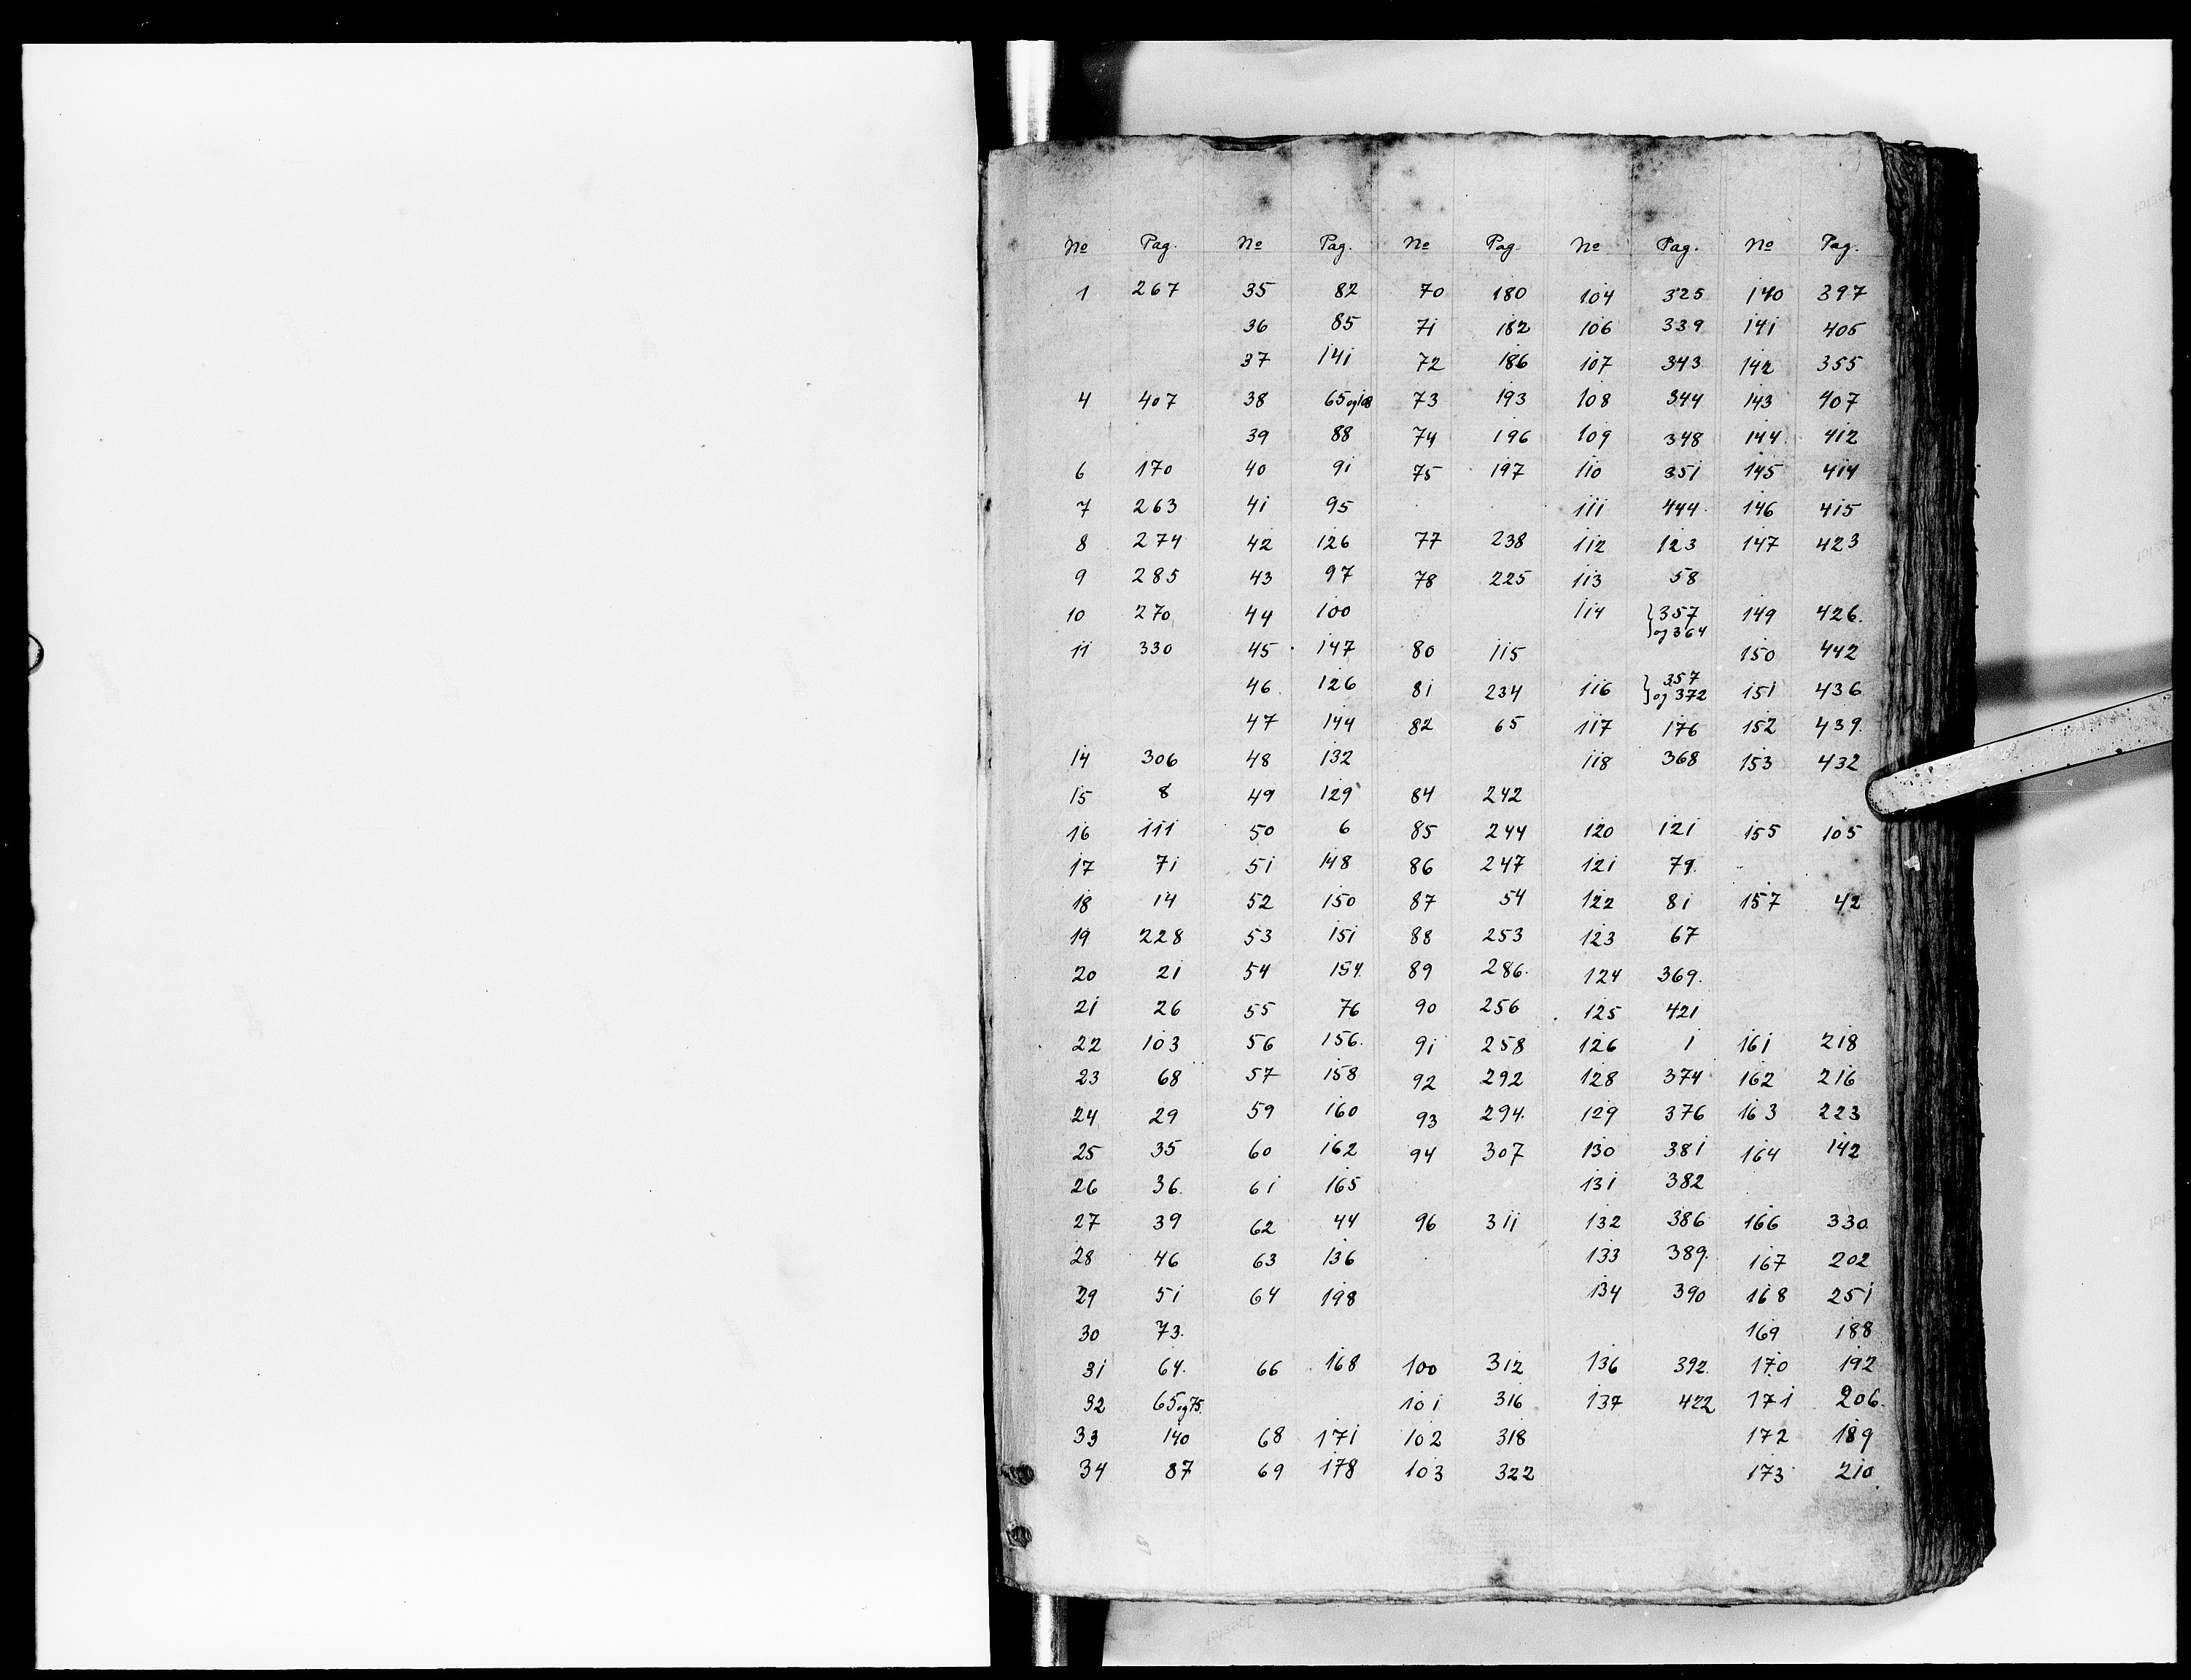 No Pag. No Pag. No Pag. No Pag. No Pag.
1 267 35 82 70 180 104 325 140 397
36 85 71 182 106 339 141 405
37 141 72 186 107 343 142 355
4 407 38 65 og 108 73 193 108 344 143 407
39 88 74 196 109 348 144 412
6 170 40 91 75 197 110 351 145 414
7 263 41 95 111 444 146 415
8 274 42 126 77 238 112 123 147 423
9 285 43 97 78 225 113 58
10 270 44 100 114 }357 149 426.
}og 364
11 330 45 147 80 115 150 442
46. 126 81 234 116 } 357 151 436
} og 372
47 144 82 65 117 176 152 439.
14 306 48 132 118 368 153 432
15 8 49 129 84 242
16 111 50 6 85 244 120 121 155 105
17 71 51 148 86 247 121 79.
18 14 52 150 87 54 122 81 157 42
19 228 53 151 88 253 123 67
20 21 54 154. 89 286. 124 369.
21 26 55 76 90 256 125 421
22 103 56 156. 91 258 126 1 161 218
23 68 57 158 92 292 128 374 162 216
24 29 59 160 93 294. 129 376 163 223
25 35 60 162 94 307 130 381 164 142
26 36. 61 165 131 382
27 39 62 44 96 311 132 386 166 330.
28 46 63 136 133 389. 167 202
29 51 64 198 134 390 168 251
30 73. 169 188
31 64. 66 168 100 312 136 392. 170 192
32 65 og 75. 101 316 137 422 171 206.
33 140 68 171 102 318 172 189
34 87 69 178 103 322 173 210.